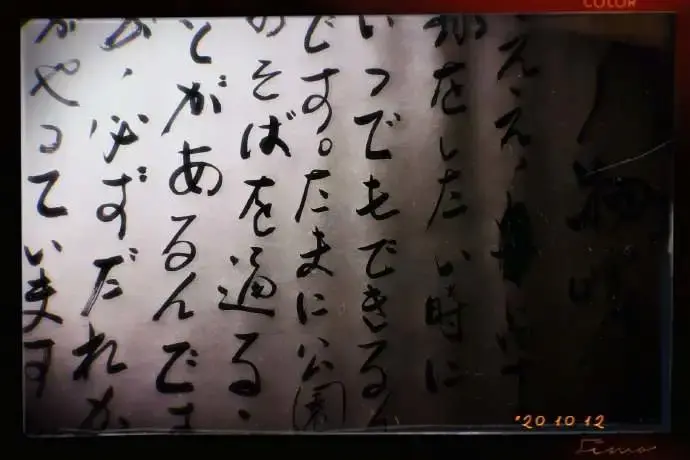 COLOR
ええ、
をしたい時に
いつでもできるん
です。たまに公園
のそばを通る、
とがあるんです
が、必ずだれか
がやっています
'20 10 12
Fimo